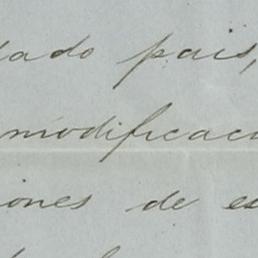 lado pais,
modificaci
iones de es